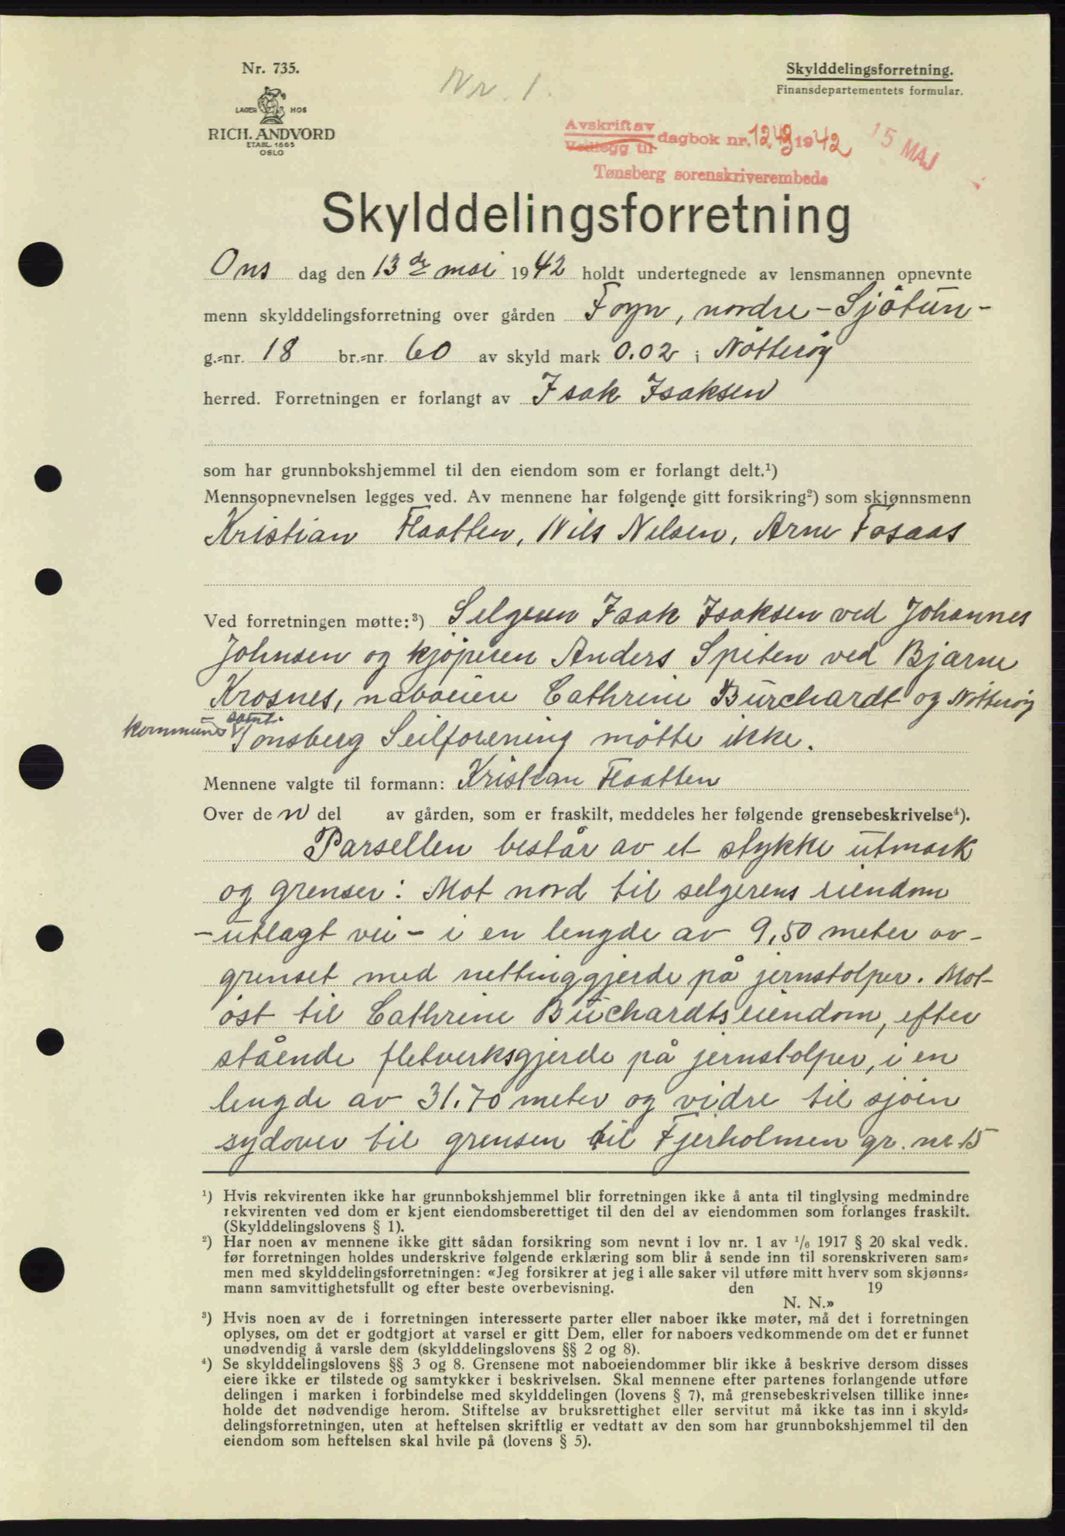 Nr. 735.
LAGER HOS
RICH. ANDVORD
ETABL. 1865
OSLO
Nr. 1.
Skylddelingsforretning.
Finansdepartementets formular.
Avskrift av
Vedlegg til dagbok nr. 1243 1942 15 MAJ
Tønsberg sorenskriverembede
Skylddelingsforretning
Ons dag den 13de mai 1942 holdt undertegnede av lensmannen opnevnte
menn skylddelingsforretning over gården Foyn, nordre - Sjøtun -
g.=nr. 18 br.=nr 60 av skyld mark 0.02 i Nøtterøy
herred. Forretningen er forlangt av Isak Isaksen
som har grunnbokshjemmel til den eiendom som er forlangt delt.¹)
Mennsopnevnelsen legges ved. Av mennene har følgende gitt forsikring²) som skjønnsmenn
Kristian Flaatten, Nils Nilsen, Arne Fosaas
Ved forretningen møtte:³) Selgeren Isak Isaksen ved Johannes
Johnsen og kjøperen Anders Spiten ved Bjarne
Krosnes, naboeien Cathrine Burchardt og Nøtterøy
kommune samt Tønsberg Seilforening møtte ikke.
Mennene valgte til formann: Kristian Flaatten
Over de n del av gården, som er fraskilt, meddeles her følgende grensebeskrivelse⁴).
Parsellen består av et stykke utmark
og grenser: Mot nord til selgerens eiendom
- utlagt vei - i en lengde av 9,50 meter av-
grenset med nettinggjerde på jernstolper. Mot-
øst til Cathrine Burchardts eiendom, efter
stående fletverksgjerde på jernstolper, i en
lengde av 31.70 meter og vidre til sjøen
sydover til grensen til Fjerholmen gr. nr. 15
¹) Hvis rekvirenten ikke har grunnbokshjemmel blir forretningen ikke å anta til tinglysing medmindre
rekvirenten ved dom er kjent eiendomsberettiget til den del av eiendommen som forlanges fraskilt.
(Skylddelingslovens § 1).
²) Har noen av mennene ikke gitt sådan forsikring som nevnt i lov nr. 1 av ¹/₆ 1917 § 20 skal vedk.
før forretningen holdes underskrive følgende erklæring som blir å sende inn til sorenskriveren sam=
men med skylddelingsforretningen: «Jeg forsikrer at jeg i alle saker vil utføre mitt hverv som skjønns=
mann samvittighetsfullt og efter beste overbevisning. den 19
N. N.»
³) Hvis noen av de i forretningen interesserte parter eller naboer ikke møter, må det i forretningen
oplyses, om det er godtgjort at varsel er gitt Dem, eller for naboers vedkommende om det er funnet
unødvendig å varsle dem (skylddelingslovens §§ 2 og 8).
⁴) Se skylddelingslovens §§ 3 og 8. Grensene mot naboeiendommer blir ikke å beskrive dersom disses
eiere ikke er tilstede og samtykker i beskrivelsen. Skal mennene efter partenes forlangende utføre
delingen i marken i forbindelse med skylddelingen (lovens § 7), må grensebeskrivelsen tillike inne=
holde det nødvendige herom. Stiftelse av bruksrettighet eller servitut må ikke tas inn i skyld=
delingsforretningen, uten at heftelsen skriftlig er vedtatt av den som har grunnbokshjemmel til den
eiendom som heftelsen skal hvile på (lovens § 5).